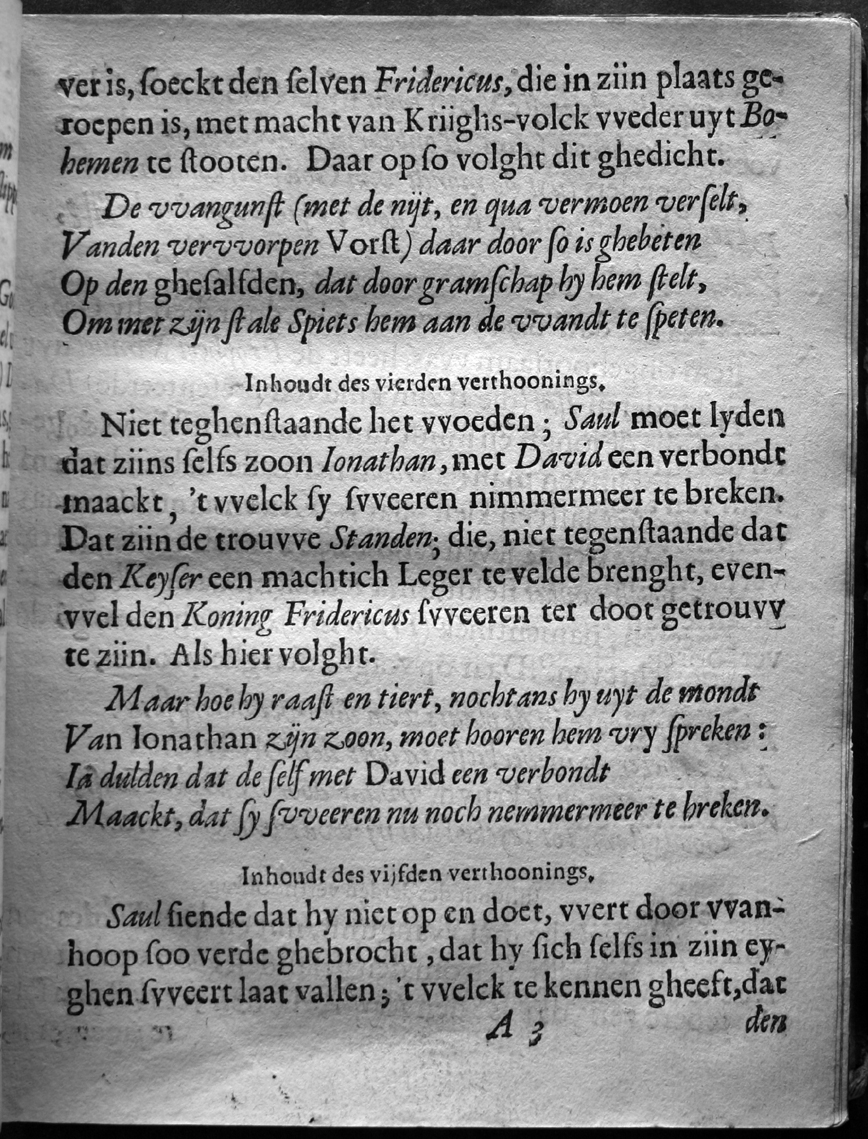 ver is, ſoeckt den ſelven Fridericus, die in ziin plaats ge-
roepen is, met macht van Kriighs-volck vveder uyt Bo-
hemen te ſtooten. Daar op ſo volght dit ghedicht.
De vvangunſt (met de nijt, en qua vermoen verſelt,
Vanden vervvorpen Vorſt) daar door ſo is ghebeten
Op den gheſalfden, dat door gramſchap hy hem ſtelt,
Om met zijn ſtale Spiets hem aan de vvandt te ſpeten.
Inhoudt des vierden verthoonings.
Niet teghenſtaande het vvoeden; Saul moet lyden
dat ziins ſelfs zoon Ionathan, met David een verbondt
maackt, 't vvelck ſy ſvveeren nimmermeer te breken.
Dat ziin de trouvve Standen; die, niet tegenſtaande dat
den Keyſer een machtich Leger te velde brenght, even-
vvel den Koning Fridericus ſvveeren ter doot getrouvv
te ziin. Als hier volght.
Maar hoe hy raaſt en tiert, nochtans hy uyt de mondt
Van Ionathan zijn zoon, moet hooren hem vry ſpreken:
Ia dulden dat de ſelf met David een verbondt
Maackt, dat ſy ſvveeren nu noch nemmermeer te breken.
Inhoudt des vijfden verthoonings.
Saul ſiende dat hy niet op en doet, vvert door vvan-
hoop ſoo verde ghebrocht, dat hy ſich ſelfs in ziin ey-
ghen ſvveert laat vallen; 't vvelck te kennen gheeft, dat
A 3 den